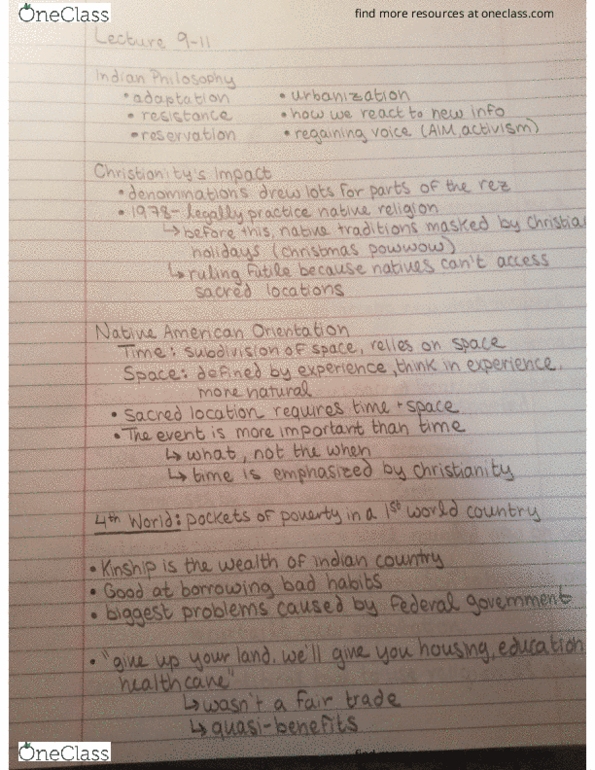 OneClass
find more resources at oneclass.com
Lecture 9-11
Indian Philosophy
• adaptation • urbanization
• resistance • how we react to new info
• reservation • regaining voice (AIM, activism)
Christianity's Impact
• denominations drew lots for parts of the rez
• 1978 - legally practice native religion
↳ before this, native traditions masked by Christia
holidays (christmas powwow)
↳ ruling futile because natives can't access
sacred locations
Native American Orientation
Time: subdivision of space, relies on space
Space: defined by experience, think in experience,
more natural
• sacred location requires time + space
• The event is more important than time
↳ what, not the when
↳ time is emphasized by christianity
4th World: pockets of poverty in a 1st world country
• Kinship is the wealth of indian country
• Good at borrowing bad habits
• biggest problems caused by federal government
• "give up your land, we'll give you housing, education
healthcare"
↳ wasn't a fair trade
↳ quasi-benefits
OneClass